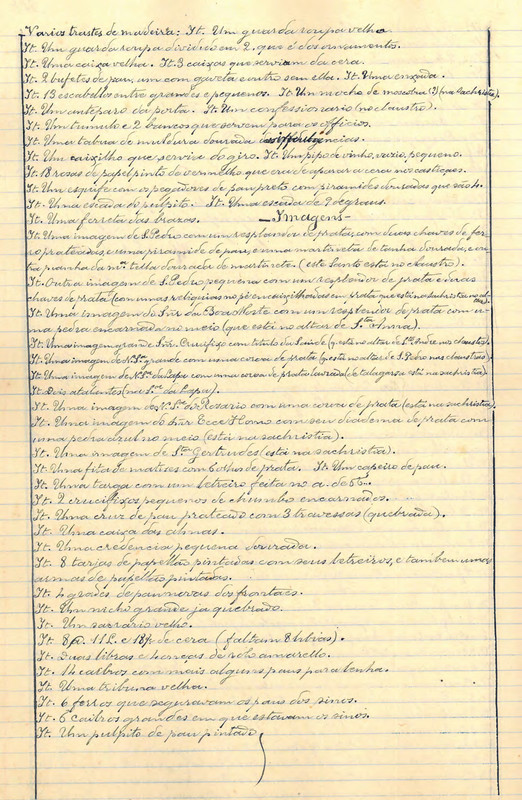 Varios trastes de madeira: It. Um guarda roupa velho
It. Um guarda roupa dividido em 2. que é dos ornamentos.
It. Uma caixa velha. It. 3 caixas que serviam da cera.
It. 2 bufetes de pau, um com gaveta e outro sem ella. It. Uma enxada.
It. 13 escabellos entre grandes e pequenos. It. Um mocho de moscovia (?) (na Sachristia).
It. Um anteparo da porta. It. Um confessionario (no claustro).
It. Um tumulo e 2 bancos que servem para os officios.
It. Uma taboa de moldura dourada indulgencias.
It. Um caixilho que servia do giro. It. Um pipo de vinho, vazio, pequeno.
It. 18 rosas de papel pinto do vermelho que era de aparar a cera nos castiçaes.
It. Um esquife com os pegadores de pau preto com piramides douradas que são 4.
It. Uma escada do pulpito. It. Uma escada de 9 degraus.
It. Uma ferreta das brazas. — Imagens —
It. Uma imagem de S. Pedro com resplandor de prata, com duas chaves de fer-
ro prateadas, e uma piramide de pau, e uma martareta de tanha dourada, e ou-
tra pianha da mesma telha dourada de martaretes. (este Santo está no claustro).
It. Outra imagem de S. Pedro pequena com um resplendor de prata e duas
chaves de prata (com umas reliquias no pé encaixilhadas em prata que está na sachristia no altar)
It. Uma imagem do Snr. da Boa Morte com um resplendor de prata com u-
ma pedra encarnada no meio (que está no altar de Sta. Anna).
It. Uma imagem grande Snr. Crucifixo com titulo da Saude (q. está no altar de Sto. André nos claustros)
It. Uma imagem de N. Sra. grande com uma coroa de prata (q. está no altar de S. Pedro nos claustros)
It. Uma imagem de N. Sra. da Lapa com uma coroa de prata lavrada (de talagarsa está na sachristia).
It. Dois atalentes (na Sra. da Lapa).
It. Uma imagem de N. Sra. do Rosario com uma coroa de prata (está na sachristia).
It. Uma imagem do Snr. Ecce Homo com seu diadema de prata com
uma pedra azul no meio (está na sachristia).
It. Uma imagem de Sta. Gertrudes (está na sachristia).
It. Uma fita de matises com 6 olhos de prata. It. Um capeiro de pau.
It. Uma targa com um letreiro feita no a. de
It. 2 crucifixos pequenos de chumbo encarnados.
It. Uma cruz de pau prateado com 3 travessas (quebrada).
It. Uma caixa das almas.
It. Uma credencia pequena dourada.
It. 8 tarjas de papellão pintadas com seus letreiros, e tambem umas
armas de papellão pintadas.
It. 4 grades de pau novas dos frontaes.
It. Um nicho grande já quebrado.
It. Um sacrario velho.
It. 8 11 L. e 18 de cera (faltam 8 libras).
It. Duas libras e 4 onças de rolo amarello.
It. 14 caibros com mais alguns paus para lenha.
It. Uma tribuna velha.
It. 6 ferros que seguravam os paus dos sinos.
It. 6 caibros grandes em que estavam os sinos.
It. Um pulpito de pau pintado